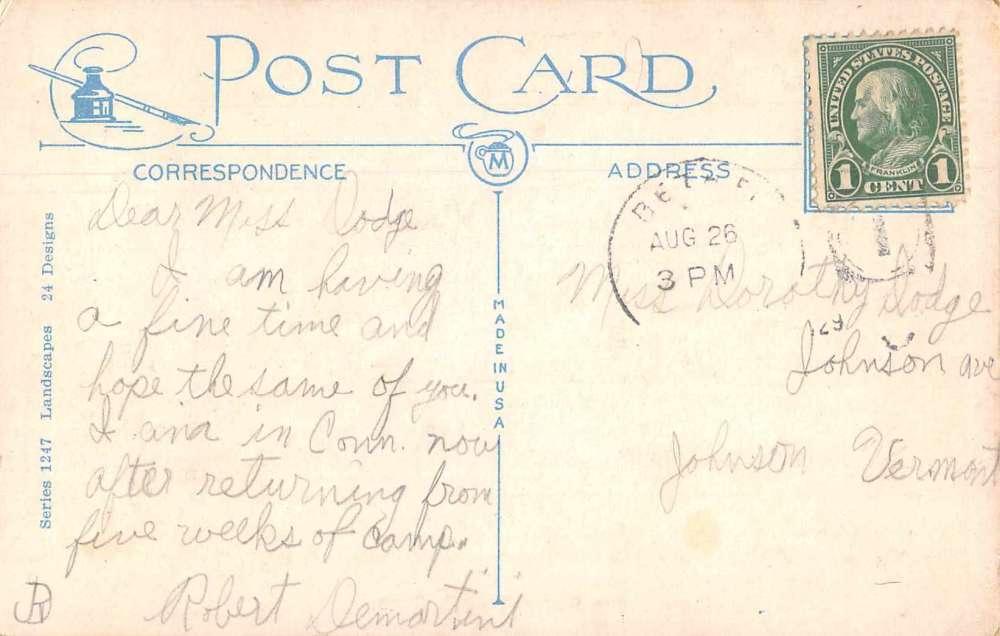 POST CARD
CORRESPONDENCE
M
ADDRESS
UNITED STATES POSTAGE
FRANKLIN
1 CENT 1
AUG 26
3 PM
Series 1247 Landscapes 24 Designs
MADE IN USA
Dear Miss Dodge
I am having
a fine time and
hope the same of you.
I am in Conn. now
after returning from
five weeks of camp.
Robert Demartini
Miss Dorothy Dodge
Johnson ave
Johnson Vermont